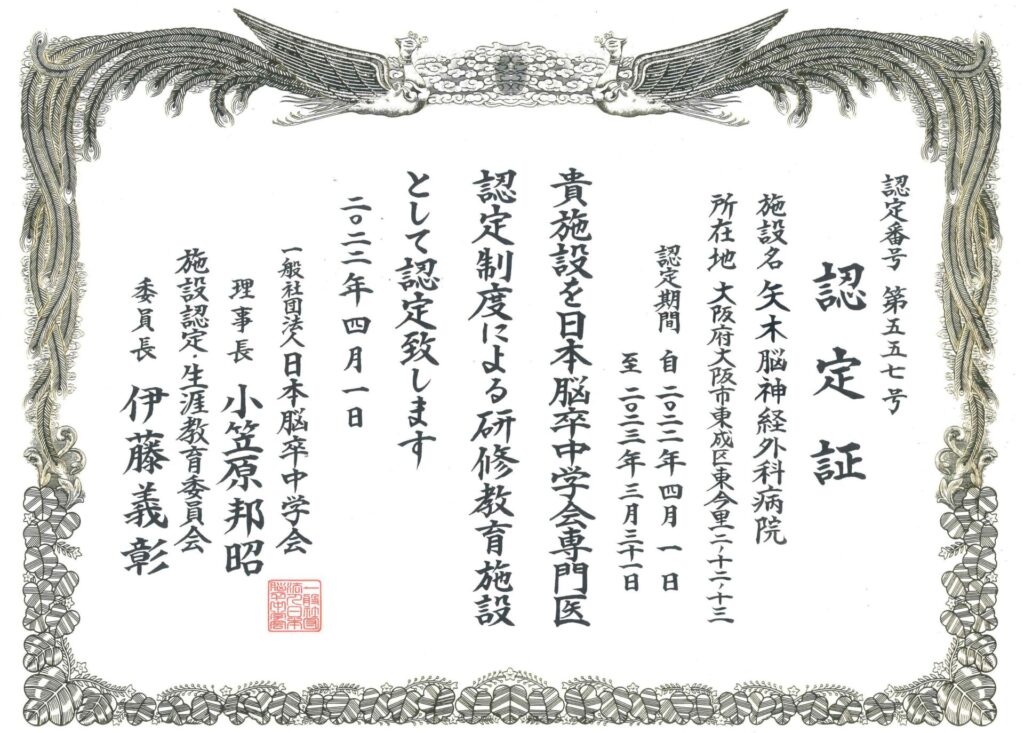 認定番号 第五五七号
認定証
施設名 矢木脳神経外科病院
所在地 大阪府大阪市東成区東今里二ノ十二ノ十三
認定期間 自 二〇二二年四月一日
至 二〇二三年三月三十一日
貴施設を日本脳卒中学会専門医
認定制度による研修教育施設
として認定致します
二〇二二年四月一日
一般社団法人日本脳卒中学会
理事長 小笠原邦昭
施設認定・生涯教育委員会
委員長 伊藤義彰